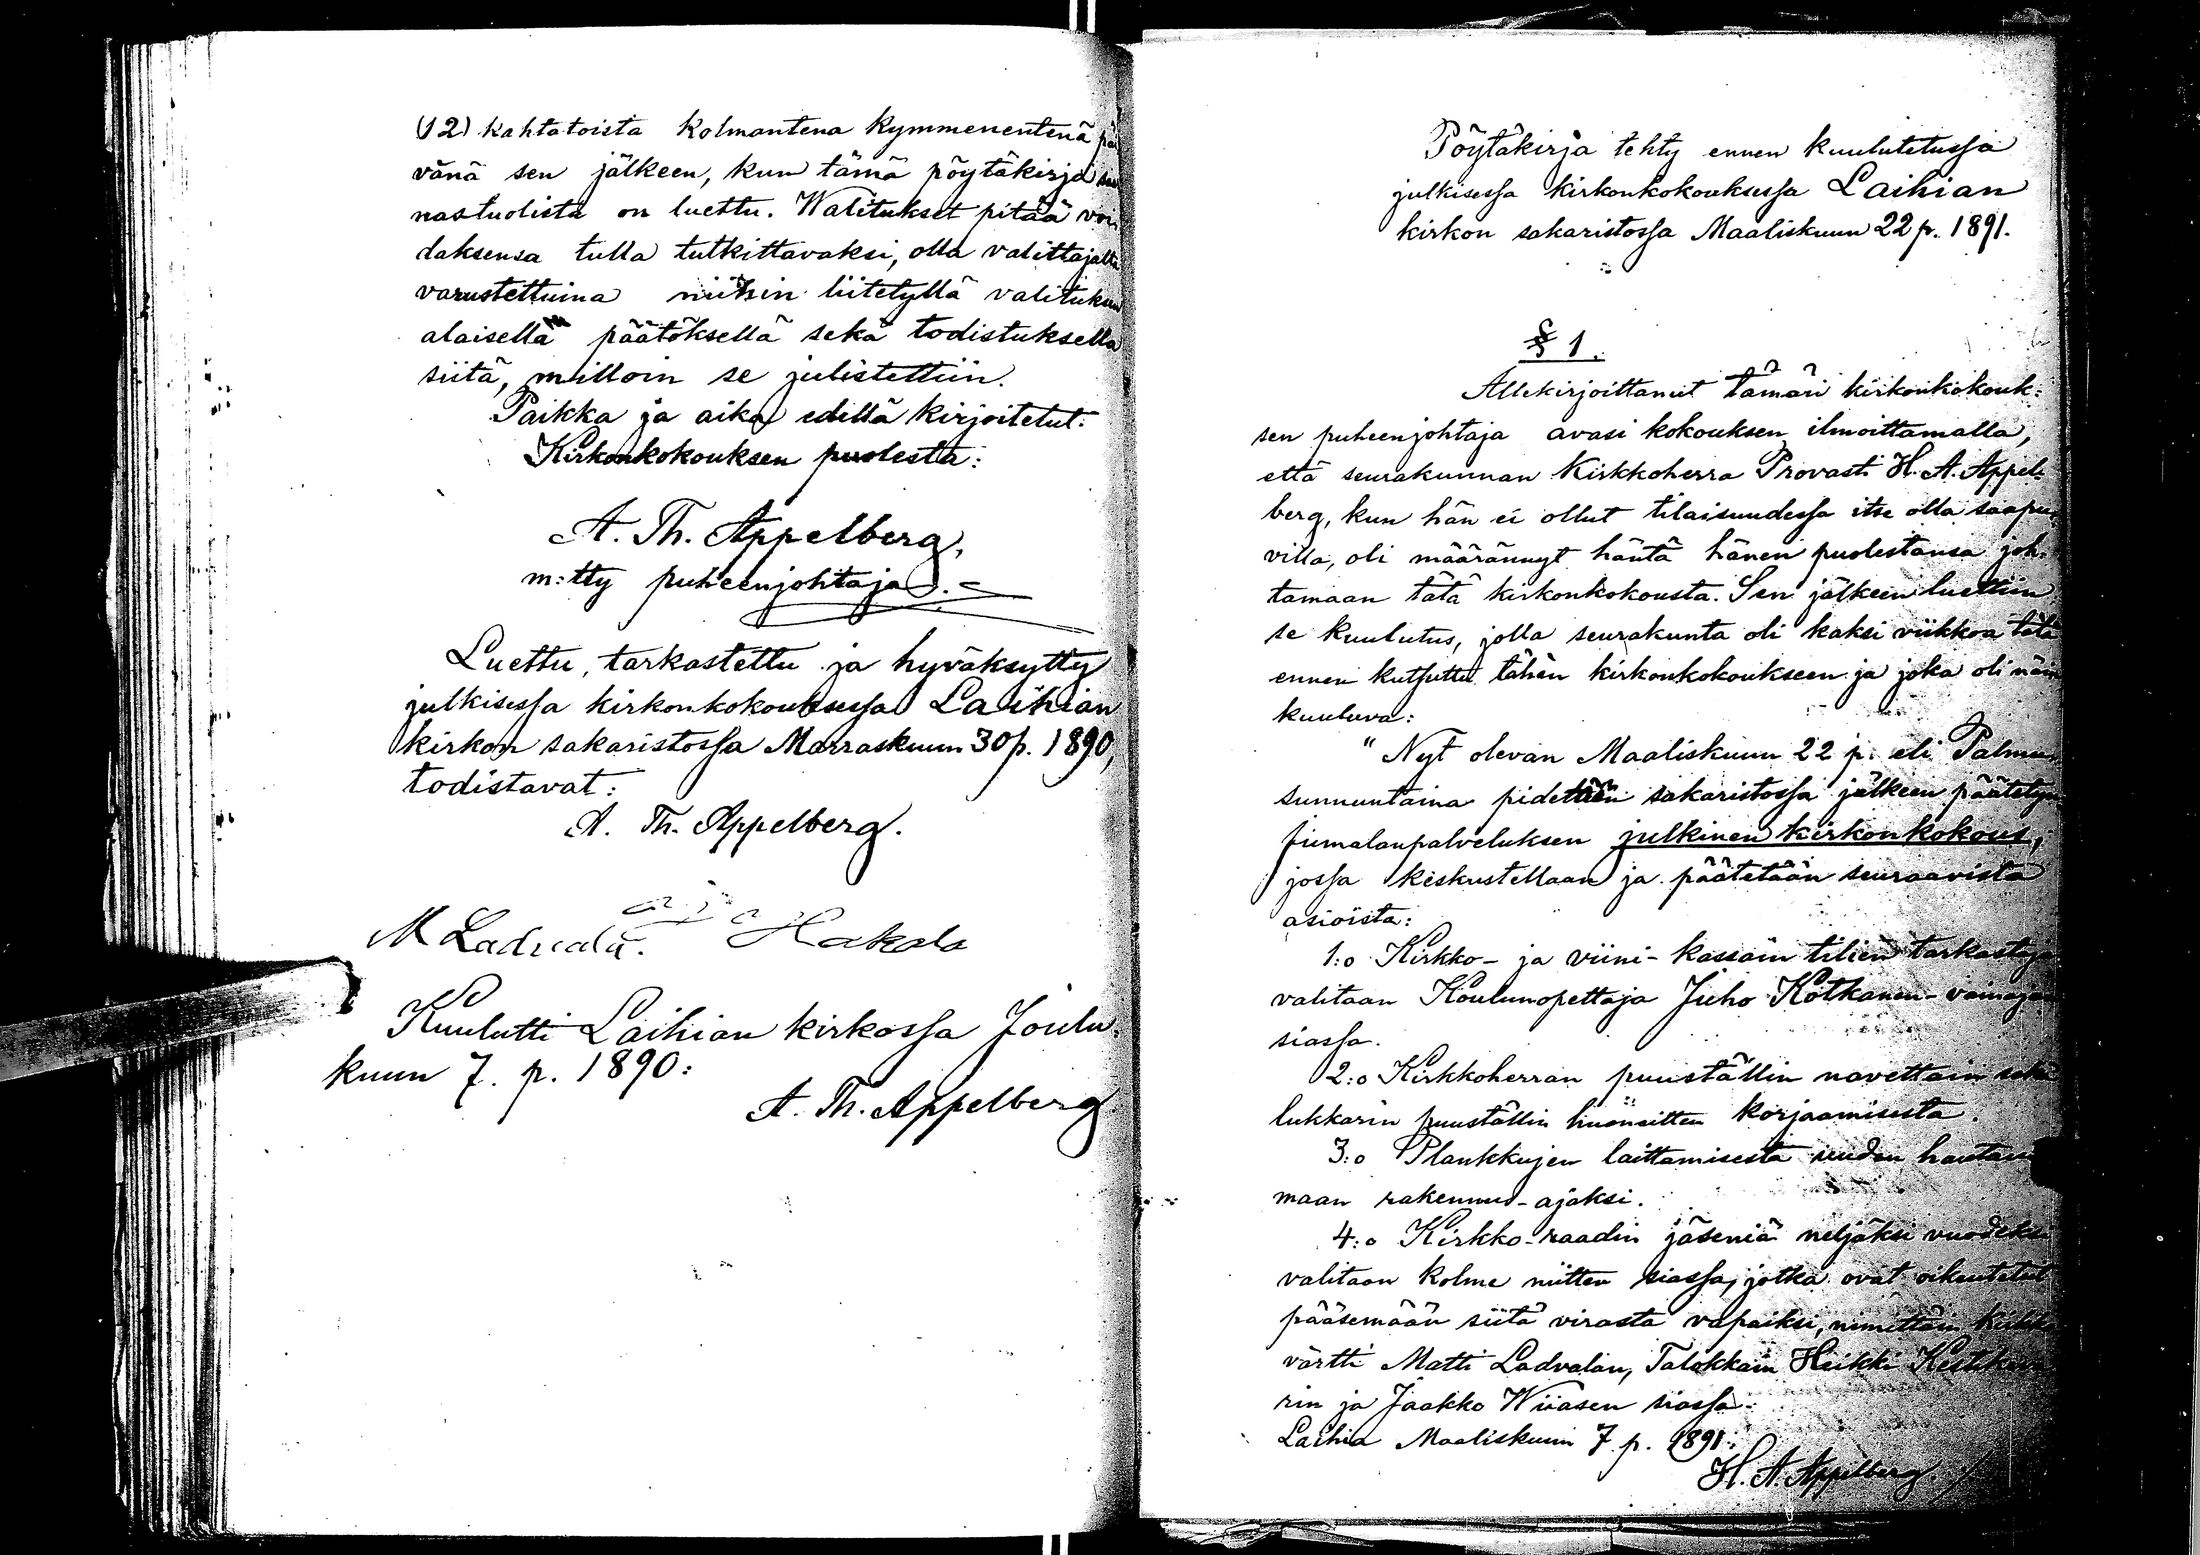 (12) kahtatoista kolmantena kymmenentenä päi
vänä sen jälkeen, kun tämä pöytäkirja saar
nastuolista on luettu. Walitukset pitää voi
daksensa tulla tutkittavaksi, olla valittajalta
varustettuina niihin liitetyllä valituksen
alaisella päätöksellä sekä todistuksella
siitä, milloin se julistettiin.
Paikka ja aika edellä kirjoitetut.
Kirkonkokouksen puolesta:
A. Th. Appelberg,
m:tty puheenjohtaja.
Luettu, tarkastettu ja hyväksytty
julkisessa kirkonkokouksessa Laihian
kirkon sakaristossa Marraskuun 30 p. 1890,
todistavat:
A. Th. Appelberg.
M Ladvala. Hakala
Kuulutti Laihian kirkossa Joulu-
kuun 7. p. 1890:
A. Th. Appelberg
Pöytäkirja tehty ennen kuulutetussa
julkisessa kirkonkokouksessa Laihian
kirkon sakaristossa Maaliskuun 22 p. 1891.
§ 1.
Allekirjoittanut tämän kirkonkokouk-
sen puheenjohtaja avasi kokouksen ilmoittamalla,
että seurakunnan Kirkkoherra Provasti H. A. Appel-
berg, kun hän ei ollut tilaisuudessa itse olla saapu-
villa, oli määrännyt häntä hänen puolestansa joh-
tamaan tätä kirkonkokousta. Sen jälkeen luettiin
se kuulutus, jolla seurakunta oli kaksi viikkoa tätä
ennen kutsuttu tähän kirkonkokoukseen ja joka oli näin
kuuluva:
"Nyt olevan Maaliskuun 22 p. eli Palmu-
sunnuntaina pidetään sakaristossa jälkeen päätetyn
jumalanpalveluksen julkinen kirkonkokous,
jossa keskustellaan ja päätetään seuraavista
asioista:
1:o Kirkko- ja viini-kassain tilien tarkastaja
valitaan Koulunopettaja Juho Kotkanen-vainajan
siassa.
2:o Kirkkoherran puuställin navettain sekä
lukkarin puuställin huoneitten korjaamisesta.
3:o Plankkujen laittamisesta uuden hautaus
maan rakennus-ajaksi.
4:o Kirkko-raadin jäseniä neljäksi vuodeksi
valitaan kolme niitten siassa, jotka ovat oikeutetut
pääsemään siitä virasta vapaiksi, nimittäin kirkko
värtti Matti Ladvalan, Talokkain Heikki Kestiken
rin ja Jaakko Wiiasen siassa.
Laihia Maaliskuun 7 p. 1891:
H. A. Appelberg.